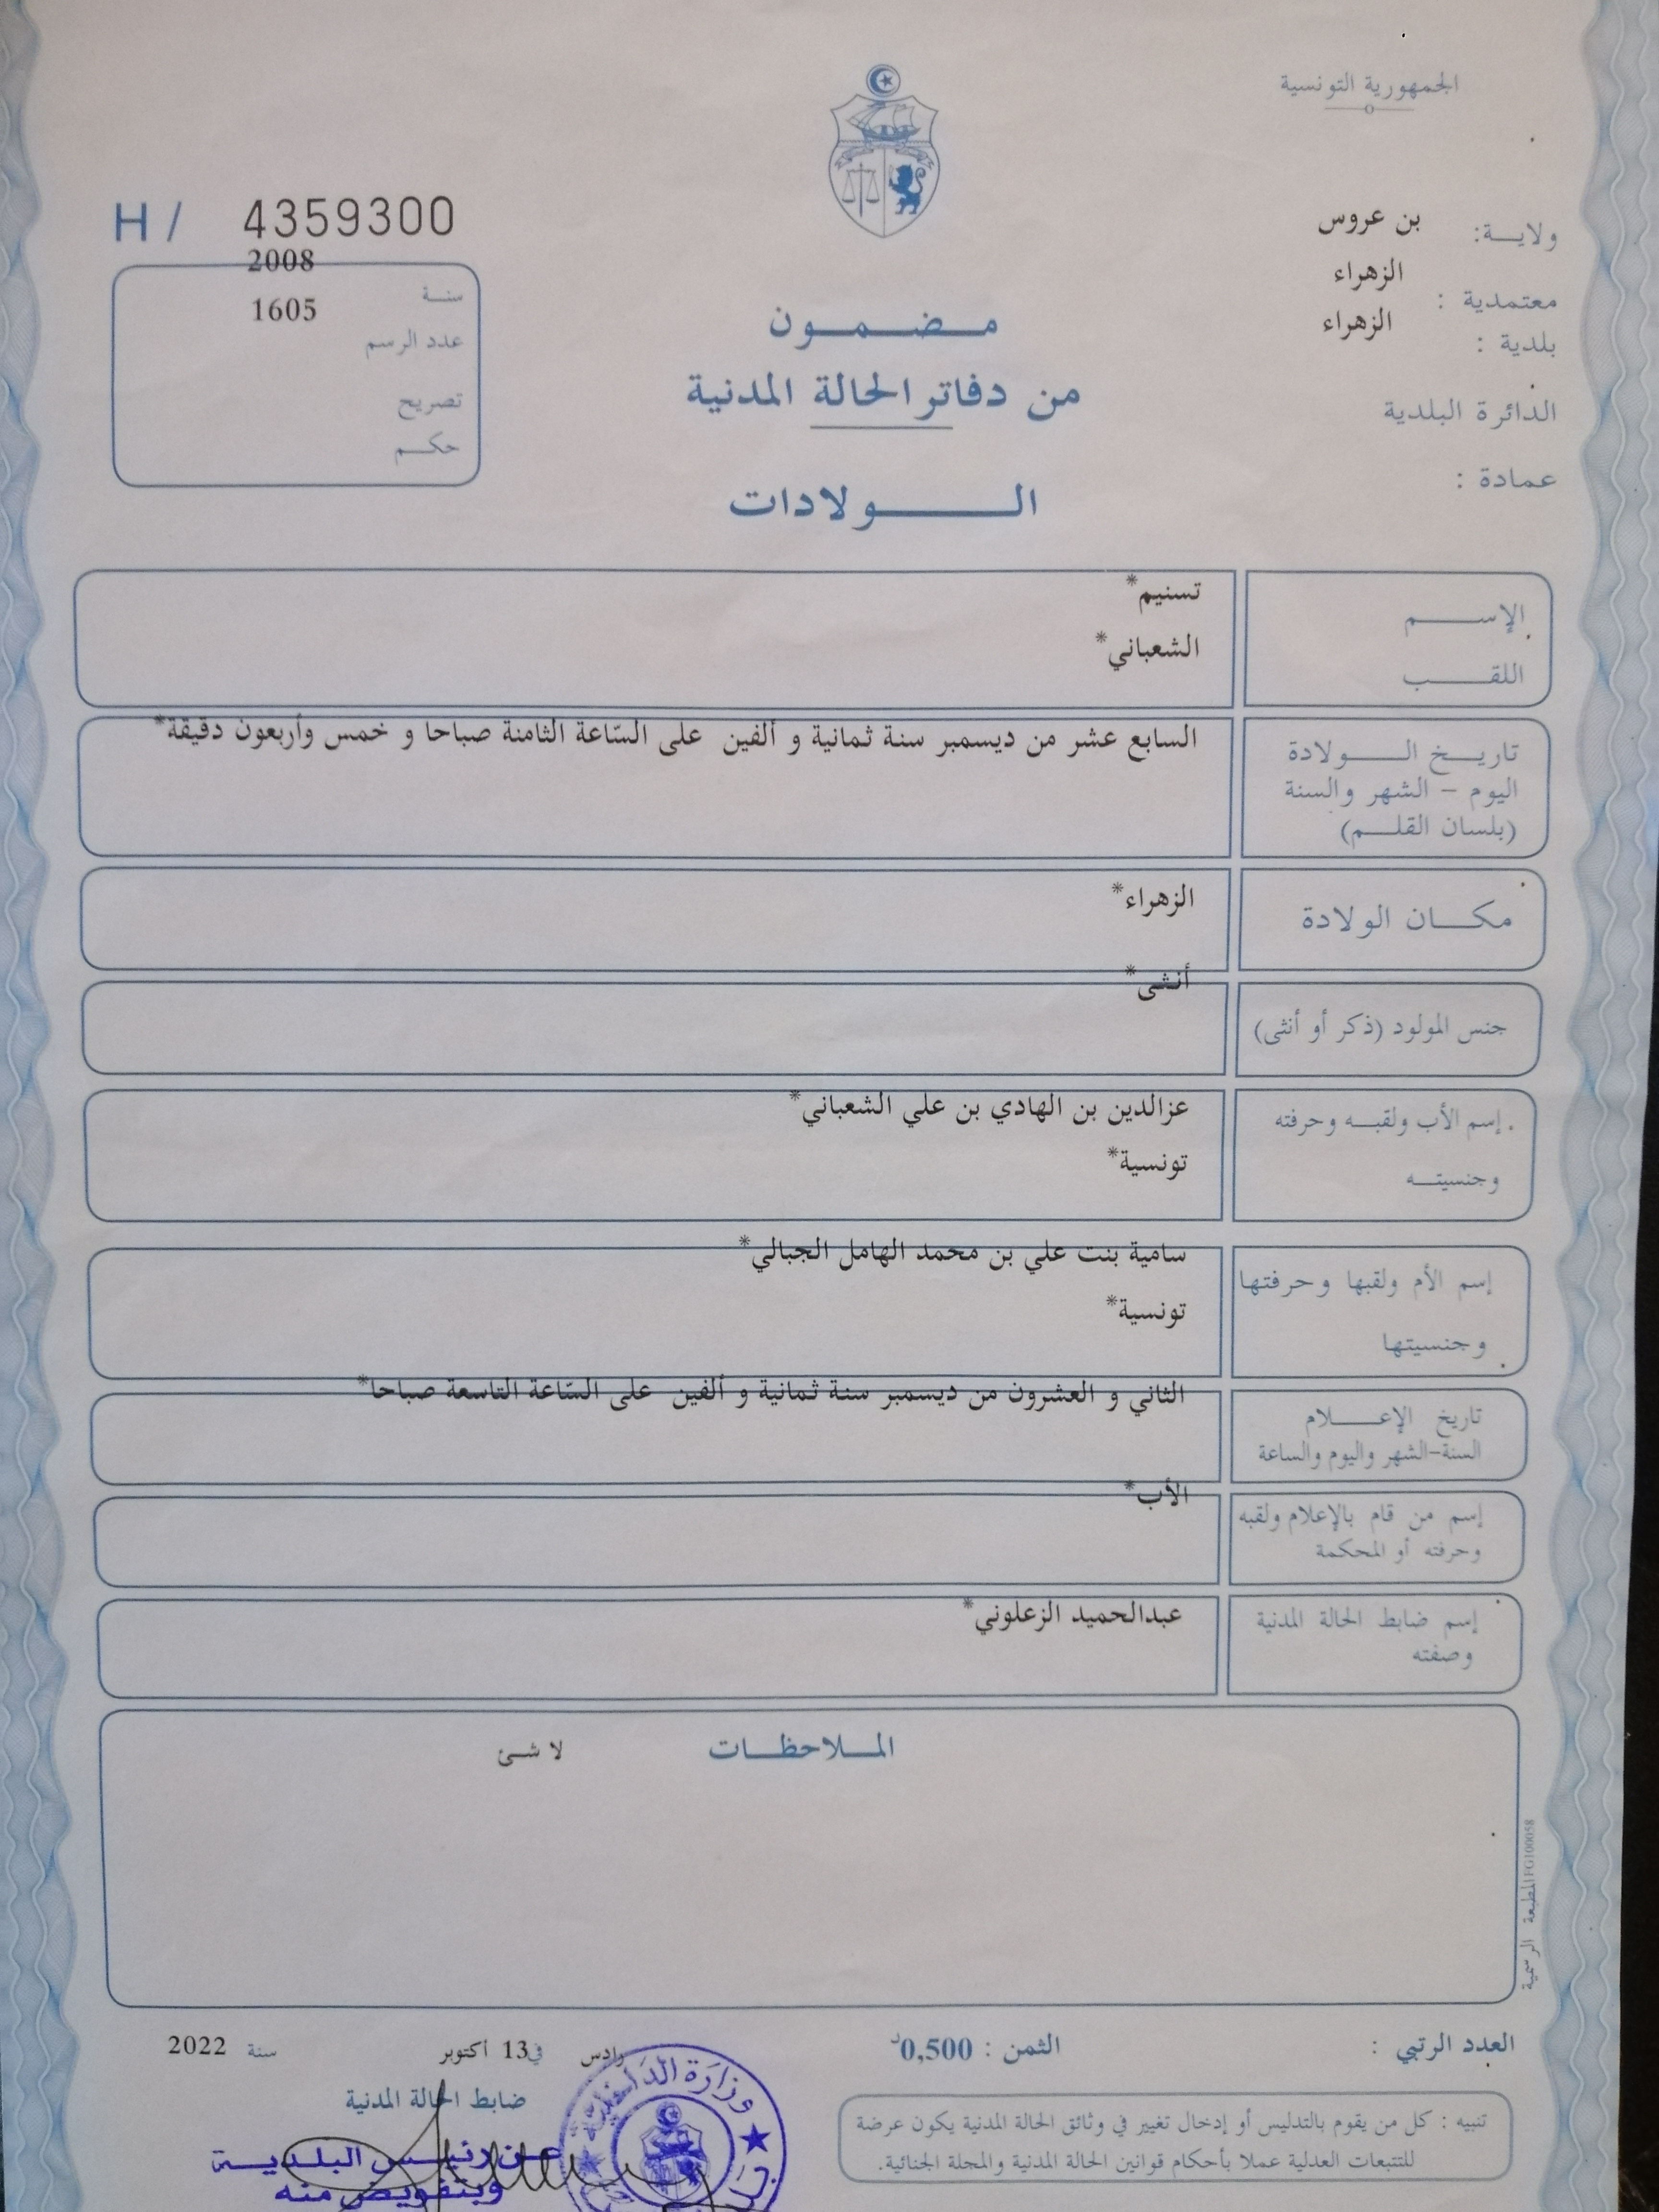 الجمهورية التونسية
ولايـــة: بن عروس
معتمدية : الزهراء
بلدية : الزهراء
الدائرة البلدية
عمادة :
H / 4359300
سنـة 2008
عدد الرسم 1605
تصريح
حكـم
مـضـمـون
من دفاتر الحالة المدنية
الـولادات
الإســـم تسنيم*
اللقـــب الشعباني*
تاريـخ الـــولادة السابع عشر من ديسمبر سنة ثمانية و ألفين على السّاعة الثامنة صباحا و خمس وأربعون دقيقة*
اليوم – الشهر والسنة
(بلسان القلـم)
مكـــان الولادة الزهراء*
جنس المولود (ذكر أو أنثى) أنثى*
إسم الأب ولقبـه وحرفته عزالدين بن الهادي بن علي الشعباني*
وجنسيتـه تونسية*
إسم الأم ولقبها وحرفتها سامية بنت علي بن محمد الهامل الجبالي*
وجنسيتها تونسية*
تاريخ الإعـــلام الثاني و العشرون من ديسمبر سنة ثمانية و ألفين على السّاعة التاسعة صباحا*
السنة-الشهر واليوم والساعة
إسم من قام بالإعلام ولقبه الأب*
وحرفته أو المحكمة
إسم ضابط الحالة المدنية عبدالحميد الزعلوني*
وصفته
المـلاحظـات لا شئ
المطبعة الرسمية
العدد الرتبي :
الثمن : 0,500د
رادس في 13 أكتوبر سنة 2022
ضابط الحالة المدنية
عـن رئيـس البلديـة
وبتفويض منه
وزارة الداخلية
تنبيه : كل من يقوم بالتدليس أو إدخال تغيير في وثائق الحالة المدنية يكون عرضة
للتتبعات العدلية عملا بأحكام قوانين الحالة المدنية والمجلة الجنائية.